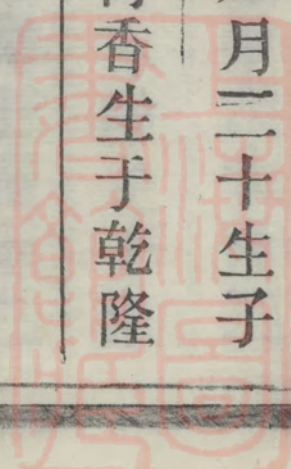 月二十生子
香生于乾隆